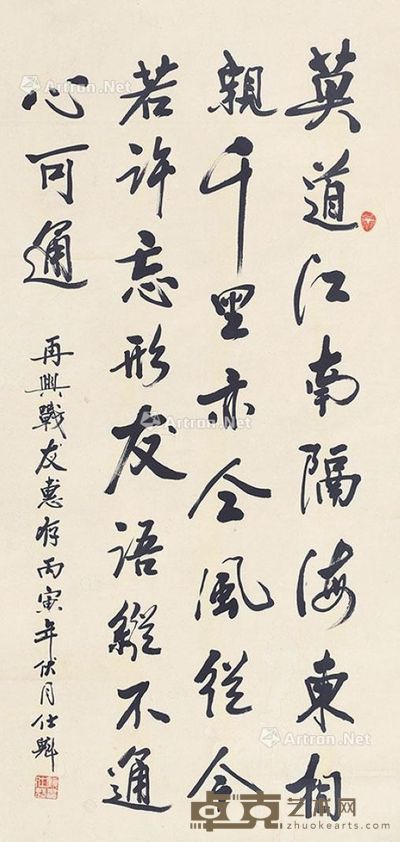 莫道江南隔海東相
親千里亦仝風從今
若許忘形友語縱不通
心可通
再興戰友惠存丙寅年伏月仕魁
Artron.Net
卓克艺术网
zhuokearts.com